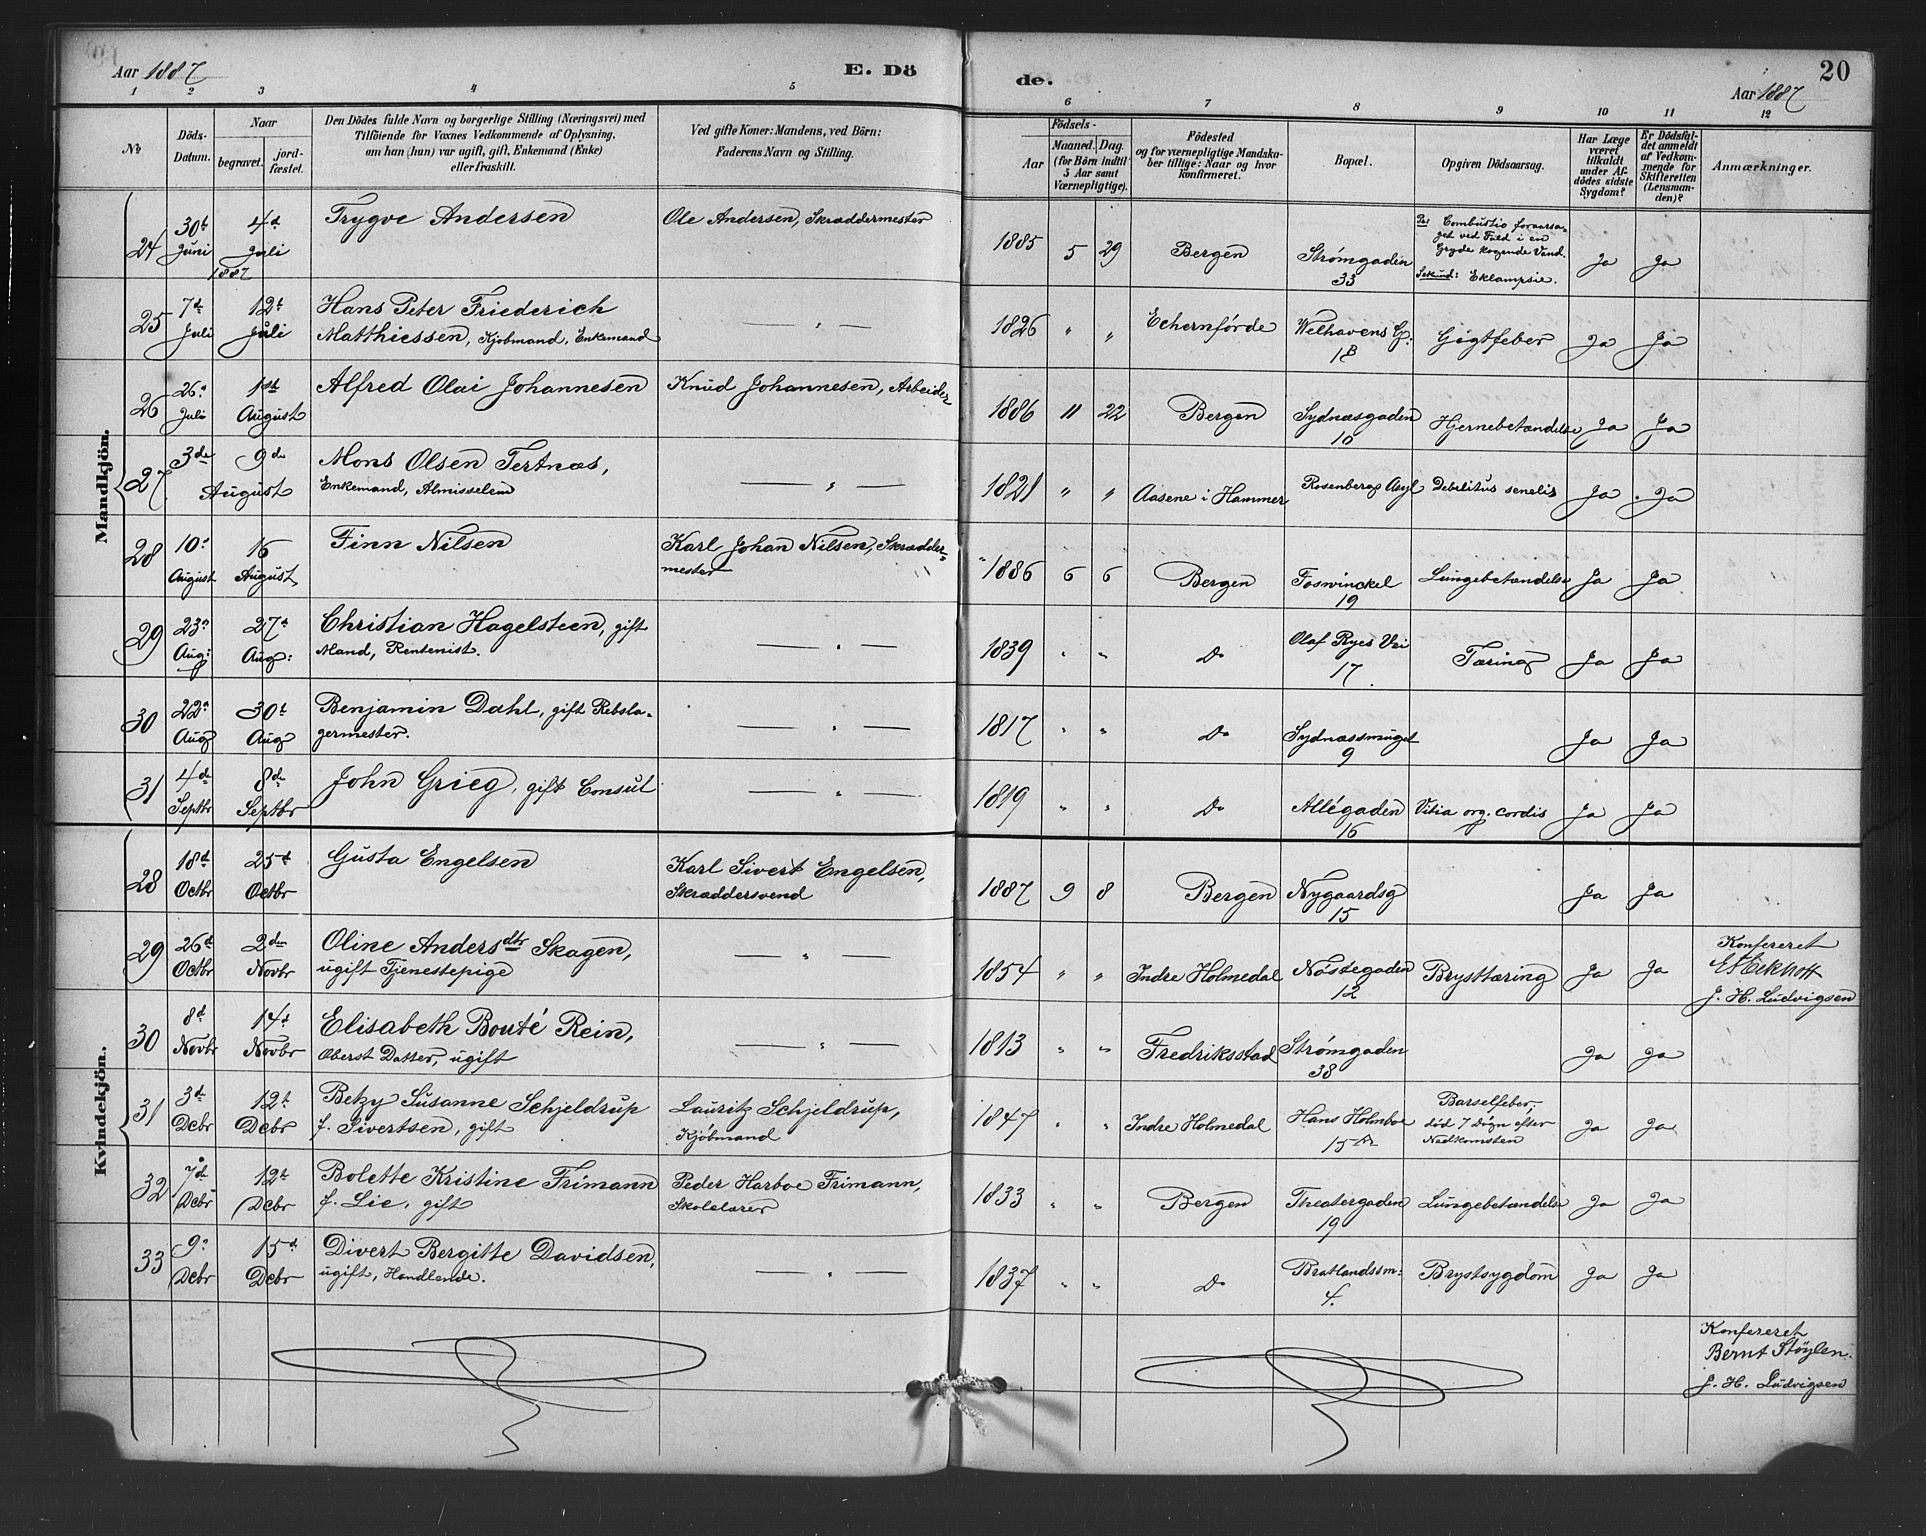 Aar 1887
E. Dö
de.
20
Aar 1887
1 2 3 4 5 6 7 8 9 10 11 12
No
Döds-Datum.
Naar
begravet.
jord-fæstet.
Den Dödes fulde Navn og borgerlige Stilling (Næringsvei) med
Tilföiende for Voxnes Vedkommende af Oplysning,
om han (hun) var ugift, gift, Enkemand (Enke)
eller fraskilt.
Ved gifte Koner: Mandens, ved Börn:
Faderens Navn og Stilling.
Födsels-
Aar
Maaned. Dag.
(for Börn indtil
5 Aar samt
Værnepligtige).
Födested
og for værnepligtige Mandska-
ber tillige: Naar og hvor
konfirmeret.
Bopæl.
Opgiven Dödsaarsag.
Har Læge
været
tilkaldt
under Af-
dödes sidste
Sygdom?
Er Dödsfal-
det anmeldt
af Vedkom-
mende for
Skifteretten
(Lensman-
den)?
Anmærkninger.
Mandkjön.
24 30t Juni 4d Juli 1887 Trygve Andersen Ole Andersen, Skræddermester 1885 5 29 Bergen Strømgaden 33 Pr: Combustio foraarsa-
get ved Fald i en
Gryde kogende Vand.
Sekund: Eklampsie. Ja Ja
25 7d Juli 12t Juli Hans Peter Friederich
Matthiessen, Kjøbmand, Enkemand — " — 1826 " " Echernförde Welhavens G: 1B Gigtfeber Ja Ja
26 26. Juli 1st August Alfred Olai Johannesen Knud Johannesen, Arbeider 1886 11 22 Bergen Sydnæsgaden 10 Hjernebetændelse Ja Ja
27 3de 9de August Mons Olsen Tertnæs,
Enkemand, Almisselem — " — 1821 " " Aasene i Hammer Rosenbergs Asyl Debelitus senelis Ja Ja
28 10. August 16 August Finn Nilsen Karl Johan Nilsen, Skrædder-
mester 1886 6 6 Bergen Foswinckel 19 Lungebetændelse Ja Ja
29 23. Aug: 27d Aug: Christian Hagelsteen, gift
Mand, Rentenist. — " — 1839 " " Do Olaf Ryes Vei 17 Tæring Ja Ja
30 22. Aug 30t Aug Benjamin Dahl, gift Rebsla-
germester. — " — 1817 " " Do Sydnæssmuget 9 Ja Ja
31 4de Septbr 8de Septbr John Grieg, gift Consul — " — 1819 " " Do Allégaden 16 Vitia org. cordis Ja Ja
Kvindekjön.
28 18d Octbr 25d Octbr Gusta Engelsen Karl Sivert Engelsen,
Skræddersvend 1887 9 8 Bergen Nygaardsg 15 Ja Ja
29 26d Octbr 2den Novbr Oline Andersdtr Skagen,
ugift Tjenestepige — " — 1854 " " Indre Holmedal Nøstegaden 12 Brysttæring Ja Ja Konfereret
J. H. Ludvigsen
30 8d Novbr 14d Novbr Elisabeth Bouté Rein,
Oberst Datter, ugift — " — 1813 " " Fredriksstad Strømgaden 38 Ja Ja
31 3de Dcbr 12t Dcbr Betzy Susanne Schjeldrup
f. Sivertsen, gift Lauritz Schjeldrup,
Kjøbmand 1847 " " Indre Holmedal Hans Holmboe 15 Barselfeber,
død 7 døgn efter
Nedkomsten Ja Ja
32 7de Dcbr 12t Dcbr Bolette Kristine Frimann
f. Lie, gift Peder Harboe Frimann,
Skolelærer 1833 " " Bergen Theatergaden 19 Lungebetændelse Ja Ja
33 9. Dcbr 15d Dcbr Divert Bergitte Davidsen,
ugift, Handlende. — " — 1837 " " Do Bratlandssm: 4. Brystsygdom Ja Ja
Konfereret
Bernt Støylen.
J. H. Ludvigsen